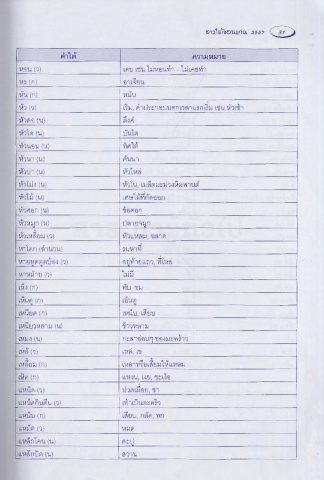 ชาวใต้ขอนแก่น, 2007 31
คำใต้ ความหมาย
หอน (ว) เคย เช่น ไม่หอนทำ - ไม่เคยทำ
หะ (ก) อาเจียน
หัน (ก)
หัว (ว) เริ่ม, คำประกอบบอกเวลาแรกเริ่ม เช่น หัวเช้า
(น) ลึงค์
หัวได (น) บันได
หัวนอน (น) ทิศใต้
หัวนา (น) คันนา
หัวบ่า (น) หัวไหล่
หัวโม่ง (น) หัวโน, เมล็ดมะม่วงหิมพานต์
หัวไม้ (น) เศษไม้ที่ตัดออก
หัวศอก (น) ข้อศอก
หัวหมูก (น) ปลายจมูก
หัวเหลี้ยม (ว) หัวแหลม, ฉลาด
หาโลก (สำนวน) รนหาที่
(ว) อยู่ท้ายแถว, ที่โหล่
หาหม้าย (ว) ไม่มี
เห็ง (ก) ทับ, ข่ม
เห็นดู (ก) เอ็นดู
เหน็ด (ก) เหน็บ, เสียบ
เหนียวหลาม (น) ข้าวหลาม
เหมง (น) กะลาอ่อนๆ ของมะพร้าว
เหล่ (ว) เหล่, เข
เหลี้ยม (ก) เหลาหรือเสี้ยมให้แหลม
เหิด (ก) แหงน, เผย, ชะเง้อ
แหน็ด (ว) ปวดเมื่อย, ชา
แหน็ดกินตีน (ว) เท้าเป็นตะคริว
แหน็บ (ก) เสียบ, กลัด, พก
แหม็ด (ว) หมด
แหล็กโคน (น) ตะปู
แหล็กปิด (น) สว่าน